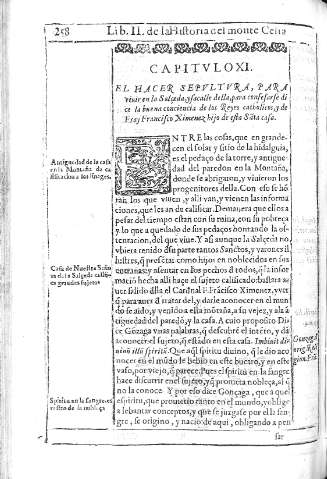 258 Lib. II. de la Historia del monte Celia
CAPITULO XI.
EL HACER SEPVLTVRA, PARA
viuir en la Salçeda, y sacalle della, para confesarse di
ce la buena conciencia de los Reyes catholicos, y de
Fray Francisco Ximenez hijo de esta Sāta casa.
ENTRE las cosas, que en grande-
cen el solar y sitio de la hidalguia,
es el pedaço de la torre, y antigue
dad del paredon en la Montaña,
donde se abriguen, y viuieron los
progenitores della. Con eso se hō
ran, los que viuen, y alli van, y vienen las informa
ciones, que les an de calificar. De manera que ellos a
pesar del tiempo estan con su ruina, con su pobreza
y lo que a quedado de sus pedaços honrando la os-
tentacion, del que viue. Y asi aunque la Salçeda no
vbiera tenido
lustres, que presentar como hijos en noblecidos en sus
entrañas; y asentar en los pechos d todos, q̃ la infor
macion hecha alli hace el sugeto calificado: bastara a
uer salido della el Cardenal F. Frācisco Ximenez, y uer
q̃ para auer d tratar del, y darle a conocer en el mun
do se aido, y venido a esta mōtaña, a su vejez, y ala
tiguedad del paredō, y la casa. A cuio proposito Di-
ce Gōzaga vnas palabras, q̃ descubrē el interes, y dā
aconocer el sugeto, q̃ estado en esta casa. Imbibit di-
uinū illū spiritū. Que aql̃ spiritu diuino, q̃ le dio aco
nocer en el mūdo le bebio en este bucaro, y en este
vaso, por viejo, q̃ parece. Pues el spiritu en la sangre
hace discurrir en el sugeto, y q̃ prometa nobleça, si q̃
no la conoce. Y por eso dice Gonçaga, que a quel
espiritu, que prometio tanto en el mundo, y oblige
a lebantar conceptos, y que se juzgase por ella san-
gre, se origino, y nacio de aqui, obligando a pen
sar
Antiguedad de la casa
en la Mōtaña da ca
lificacion a los sugetos.
Casa de Nuestra Señora
de la Salçeda califi-
ca grandes sugetos
Spiritu en la sangre, es
rastro de la nobleça